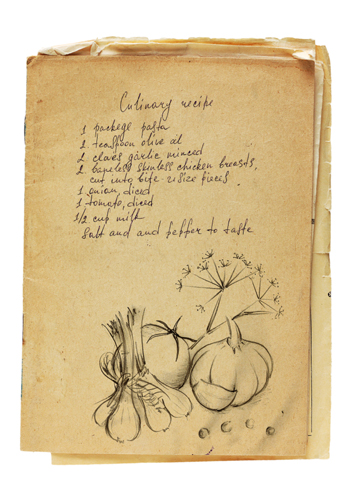 Culinary recipe
1 packege pasta
2 teaspoon olive oil
2 claves garlic minced
2 baneless skinless chicken breasts,
cut into bite size pieces
1 onian, diced
1 tomato, diced
1/2 cup milk
Salt and and peffer to taste